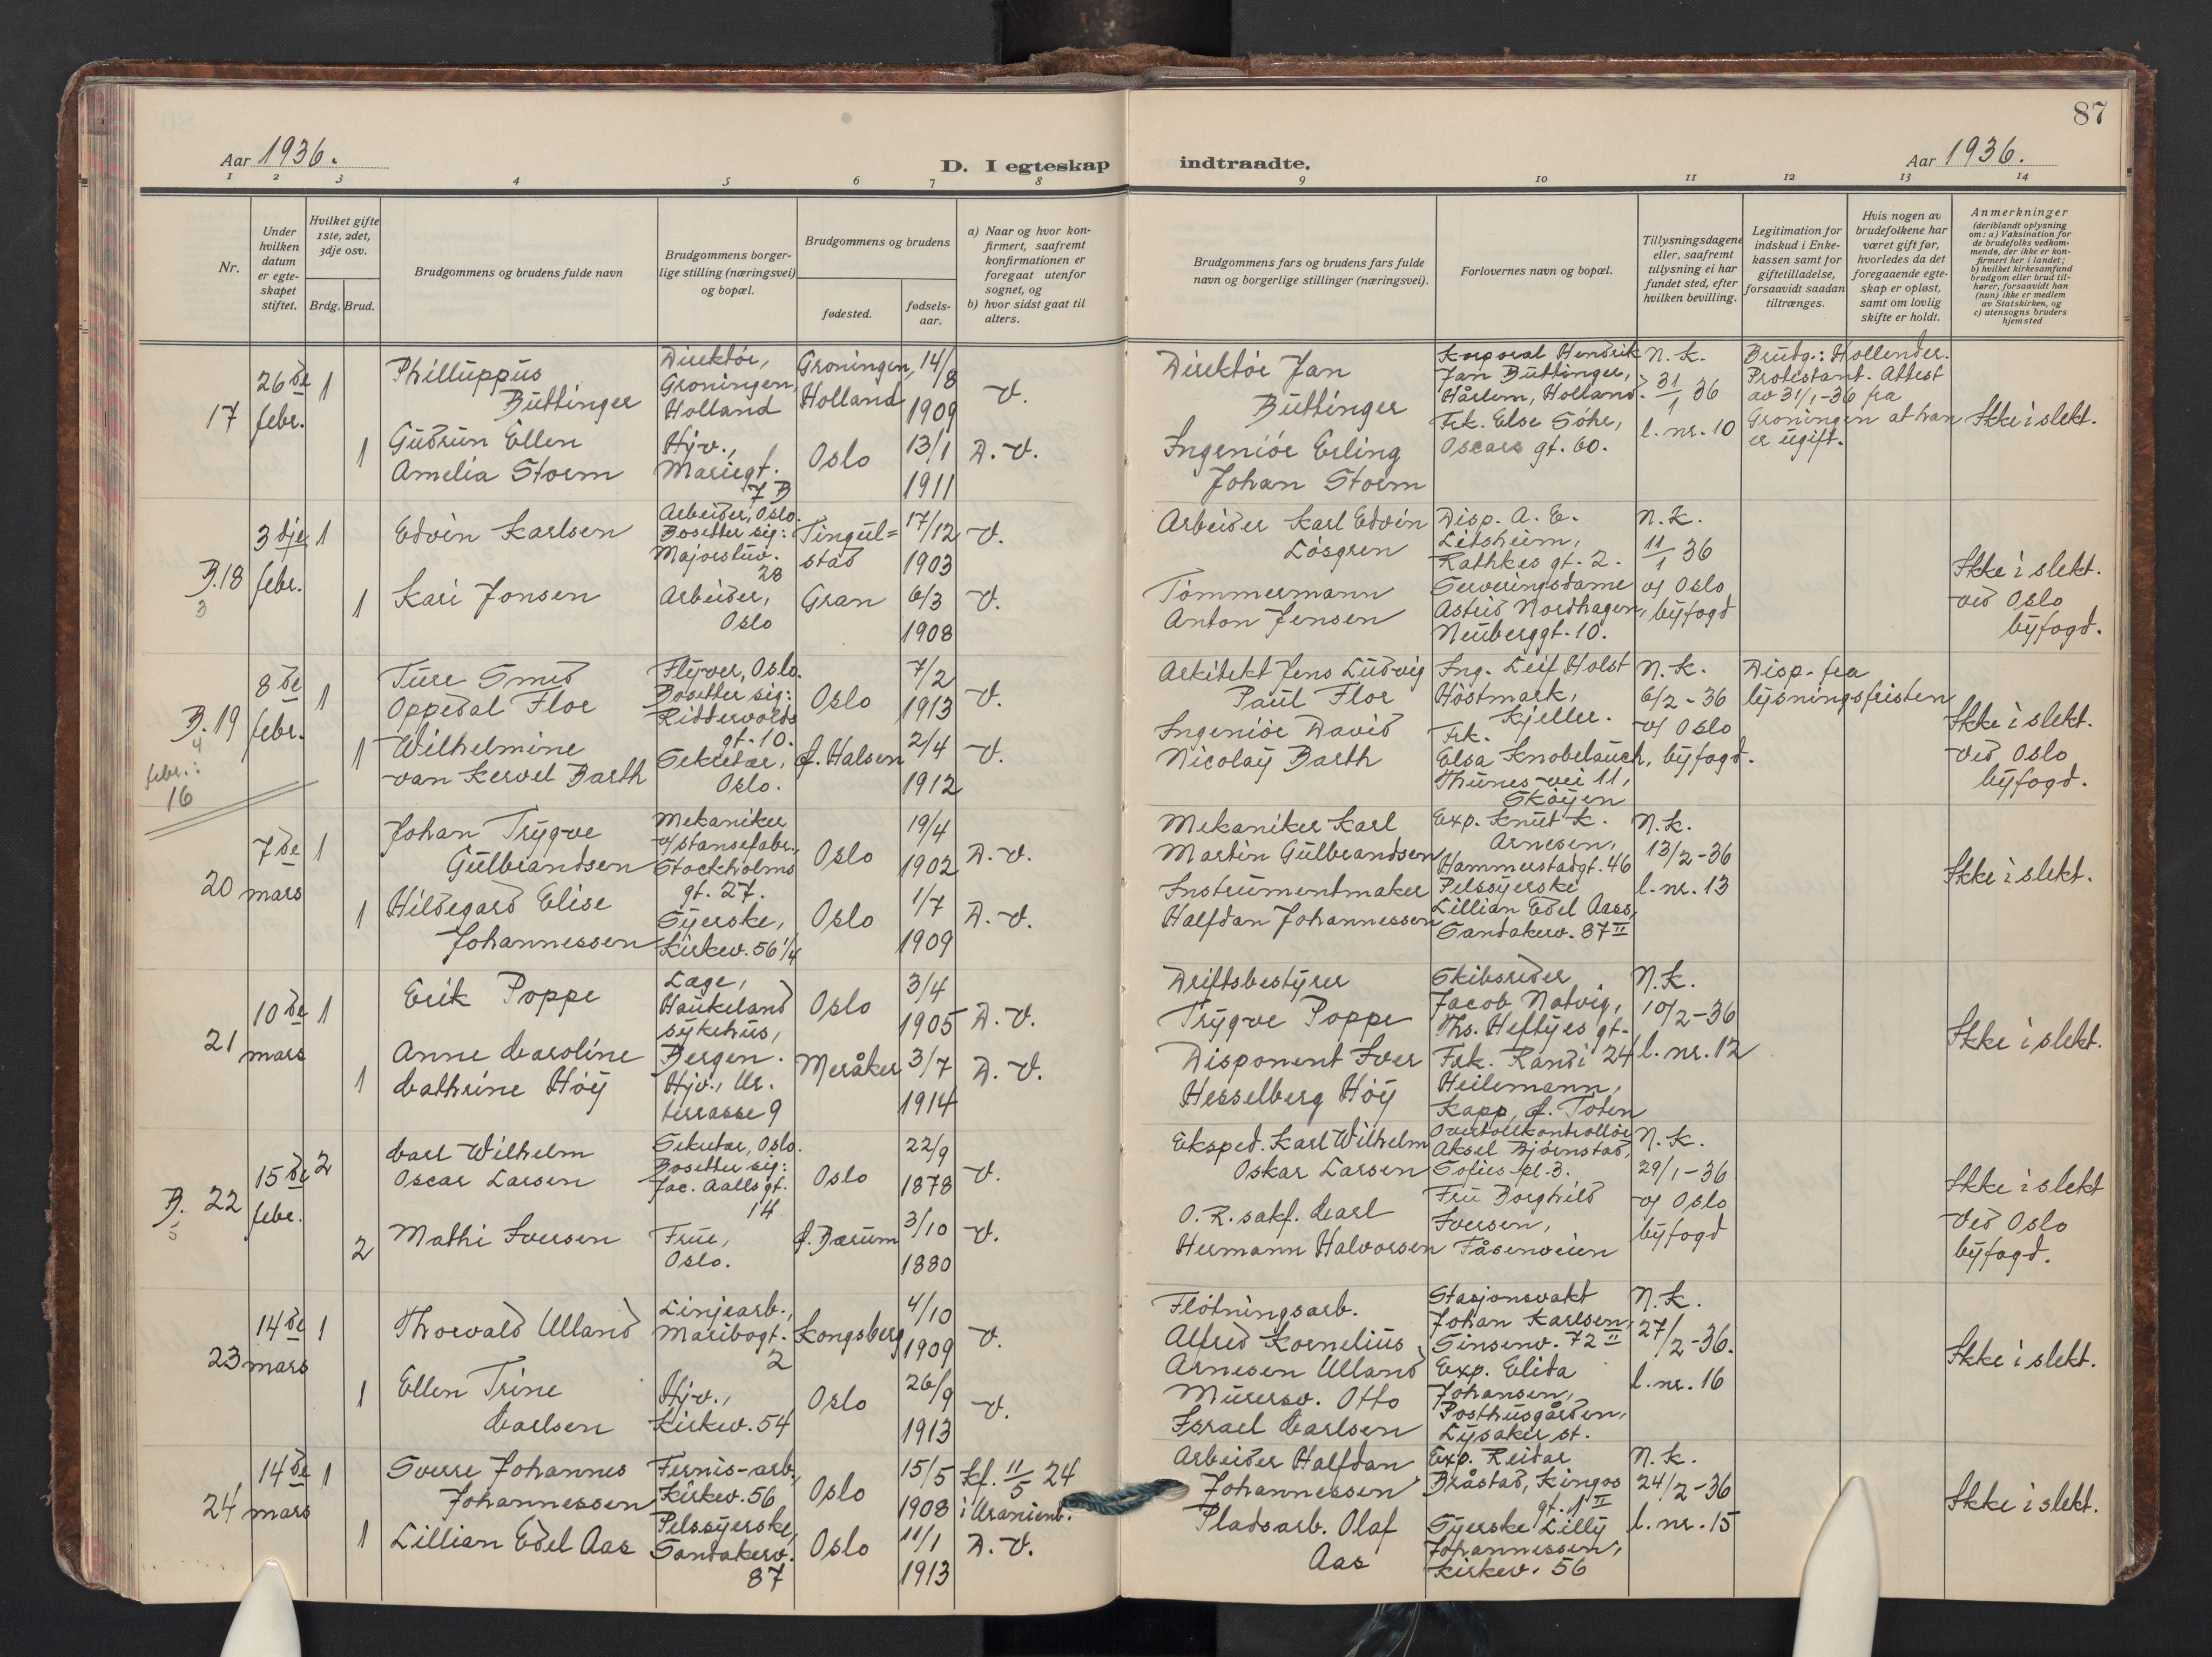 87
Aar 1936.
D. I egteskap indtraadte.
Aar 1936.
1 2 3 4 5 6 7 8 9 10 11 12 13 14
Nr.
Under hvilken datum er egteskapet stiftet.
Hvilket gifte 1ste, 2det, 3dje osv.
Brdg. Brud.
Brudgommens og brudens fulde navn
Brudgommens borgerlige stilling (næringsvei) og bopæl.
Brudgommens og brudens
fødested.
fødselsaar.
a) Naar og hvor konfirmert, saafremt konfirmationen er foregaat utenfor sognet, og
b) hvor sidst gaat til alters.
Brudgommens fars og brudens fars fulde navn og borgerlige stillinger (næringsvei).
Forlovernes navn og bopæl.
Tillysningsdagene eller, saafremt tillysning ei har fundet sted, efter hvilken bevilling.
Legitimation for indskud i Enkekassen samt for giftetilladelse, forsaavidt saadan tiltrænges.
Hvis nogen av brudefolkene har været gift før, hvorledes da det foregaaende egteskap er opløst, samt om lovlig skifte er holdt.
Anmerkninger (deriblandt oplysning om: a) Vaksination for de brudefolks vedkommende, der ikke er konfirmert her i landet; b) hvilket kirkesamfund brudgom eller brud tilhører, forsaavidt han (hun) ikke er medlem av Statskirken, og c) utensogns bruders hjemsted
17
26de febr.
1
Philluppus Buttinger
Direktör, Groningen, Holland
Groningen, Holland
14/8 1909
V.
Direktör Jan Buttinger
Korporal Hendrik Jan Buttinger, Hårlem, Holland.
Frk. Else Söhr, Oscars gt. 60.
N.K. 31/1 36 l. nr. 10
Brudg.: Hollender. Protestant. Attest av 31/1-36 fra Groningen at han er ugift.
Ikke i slekt.
1
Gudrun Ellen Amelia Storm
Hjv., Mariegt. 7 B
Oslo
13/1 1911
D.V.
Ingeniör Erling Johan Storm
B.18
3
3dje febr.
1
Edvin Karlsen
Arbeider, Oslo. Bosetter sig: Majorstuv. 28
Tingulstad
17/12 1903
V.
Arbeider Karl Edvin Lösgren
Disp. A. E. Litsheim, Rathkes gt. 2.
Serveringsdame Astrid Nordhagen, Neuberggt. 10.
N.K. 11/1 36 v/ Oslo byfogd
Ikke i slekt. ved Oslo byfogd.
1
Kari Jonsen
Arbeider, Oslo
Gran
6/3 1908
V.
Tömmermann Anton Jensen
B.19
4
8de febr.
1
Ture Smed Oppedal Flor
Flyver, Oslo. Bosetter sig: Riddervolds gt. 10.
Oslo
7/2 1913
V.
Arkitekt Jens Ludvig Paul Flor
Ing. Leif Holst Höstmark, Kjeller.
Frk. Elsa Knobelauch, Thunes vei 11, Sköyen
N.K. 6/2-36 v/ Oslo byfogd.
Disp. fra lysningsfristen
Ikke i slekt. ved Oslo byfogd.
1
Wilhelmine van Kervel Barth
Sekretær, Oslo.
f. Halsen
2/4 1912
V.
Ingeniör David Nicolay Barth
febr.: 16
20
7de mars
1
Johan Trygve Gulbrandsen
Mekaniker v/ stansefabr., Stockholms gt. 27.
Oslo
19/4 1902
D.V.
Mekaniker Karl Martin Gulbrandsen
Exp. Knut K. Arnesen, Hammerstadgt. 46
Pelssyerske Lillian Edel Aass, Sandakerv. 87 II
N.K. 13/2-36 l. nr. 13
Ikke i slekt.
1
Hildegard Elise Johannessen
Syerske, Kirkev. 56 1/4
Oslo
1/7 1909
D.V.
Instrumentmaker Halfdan Johannessen
21
10de mars
1
Erik Poppe
Læge, Haukeland sykehus, Bergen.
Oslo
3/4 1905
D.V.
Driftsbestyrer Trygve Poppe
Skibsreder Jacob Natvig, Ths. Heftyes gt. 24
Frk. Randi Heilemann, Kapp, f. Toten
N.K. 10/2-36 l. nr. 12
Ikke i slekt.
1
Anne Caroline Cathrine Höy
Hjv., Ur. terrasse 9
Meråker
3/7 1914
D.V.
Disponent Iver Hesselberg Höy
B. 22
5
15de febr.
2
Carl Wilhelm Oscar Larsen
Sekretær, Oslo. Bosetter sig: Jac. Aalls gt. 14
Oslo
22/9 1878
V.
Eksped. Karl Wilhelm Oskar Larsen
Overtollkontrollör Aksel Bjørnstad, Sofies pl. 3.
Fru Borghild Iversen, Fåsenveien
N.K. 29/1-36 v/ Oslo byfogd
Ikke i slekt ved Oslo byfogd.
2
Mathi Iversen
Frue, Oslo.
f. Bærum
3/10 1880
V.
O.R. sakf. Carl Hermann Halvorsen
23
14de mars
1
Thorvald Ulland
Linjearb., Maribogt. 2
Kongsberg
4/10 1909
V.
Flötningsarb. Alfred Kornelius Arnesen Ulland
Stasjonsvakt Johan Karlsen, Sinsenv. 72 II
Exp. Elida Johansen, Posthusgården, Lysaker st.
N.K. 27/2-36. l. nr. 16
Ikke i slekt.
1
Ellen Trine Carlsen
Hjv., Kirkev. 54
Oslo
26/9 1913
V.
Murersv. Otto Israel Carlsen
24
14de mars
1
Sverre Johannes Johannessen
Fernis-arb., Kirkev. 56
Oslo
15/5 1908
kf. 11/5 24 i Uranienb.
Arbeider Halfdan Johannessen
Exp. Reidar Bråstad, Kingos gt. 1 II
Syerske Lilly Johannessen, Kirkev. 56
N.K. 24/2-36 l. nr. 15
Ikke i slekt.
1
Lillian Edel Aas
Pelssyerske, Sandakerv. 87
Oslo
11/1 1913
D.V.
Pladsarb. Olaf Aas